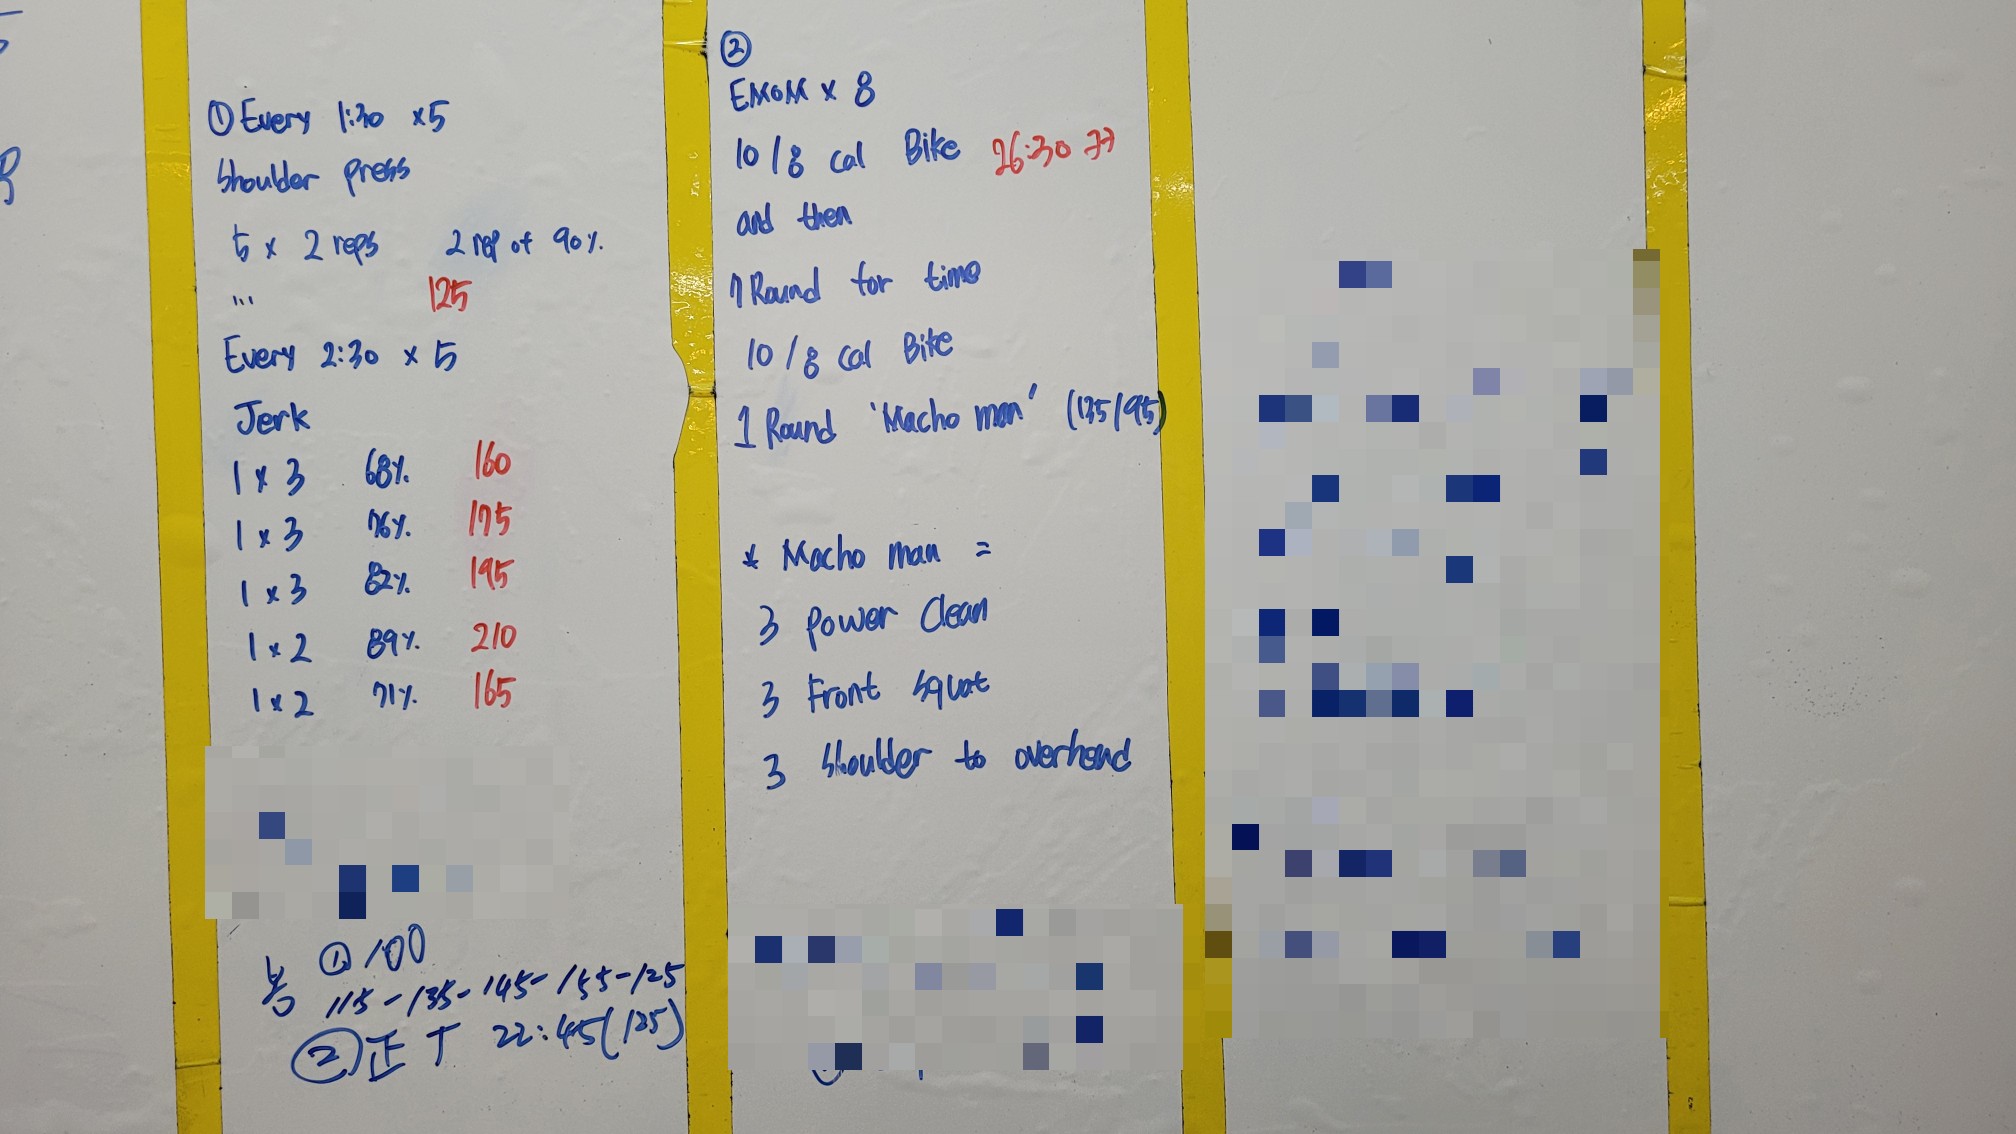 ① Every 1:30 x5
Shoulder press
5 x 2 reps 2 rep of 90%.
''' 125
Every 2:30 x 5
Jerk
1 x 3 68%. 160
1 x 3 76%. 175
1 x 3 82%. 195
1 x 2 89%. 210
1 x 2 71%. 165
봉 ① 100
115-135-145-155-125
② 正 T 22:45(125)
②
EMOM x 8
10/8 cal Bike 26:30
and then
7 Round for time
10/8 cal Bike
1 Round 'Macho man' (135/95)
* Macho man =
3 power Clean
3 Front squat
3 Shoulder to overhead